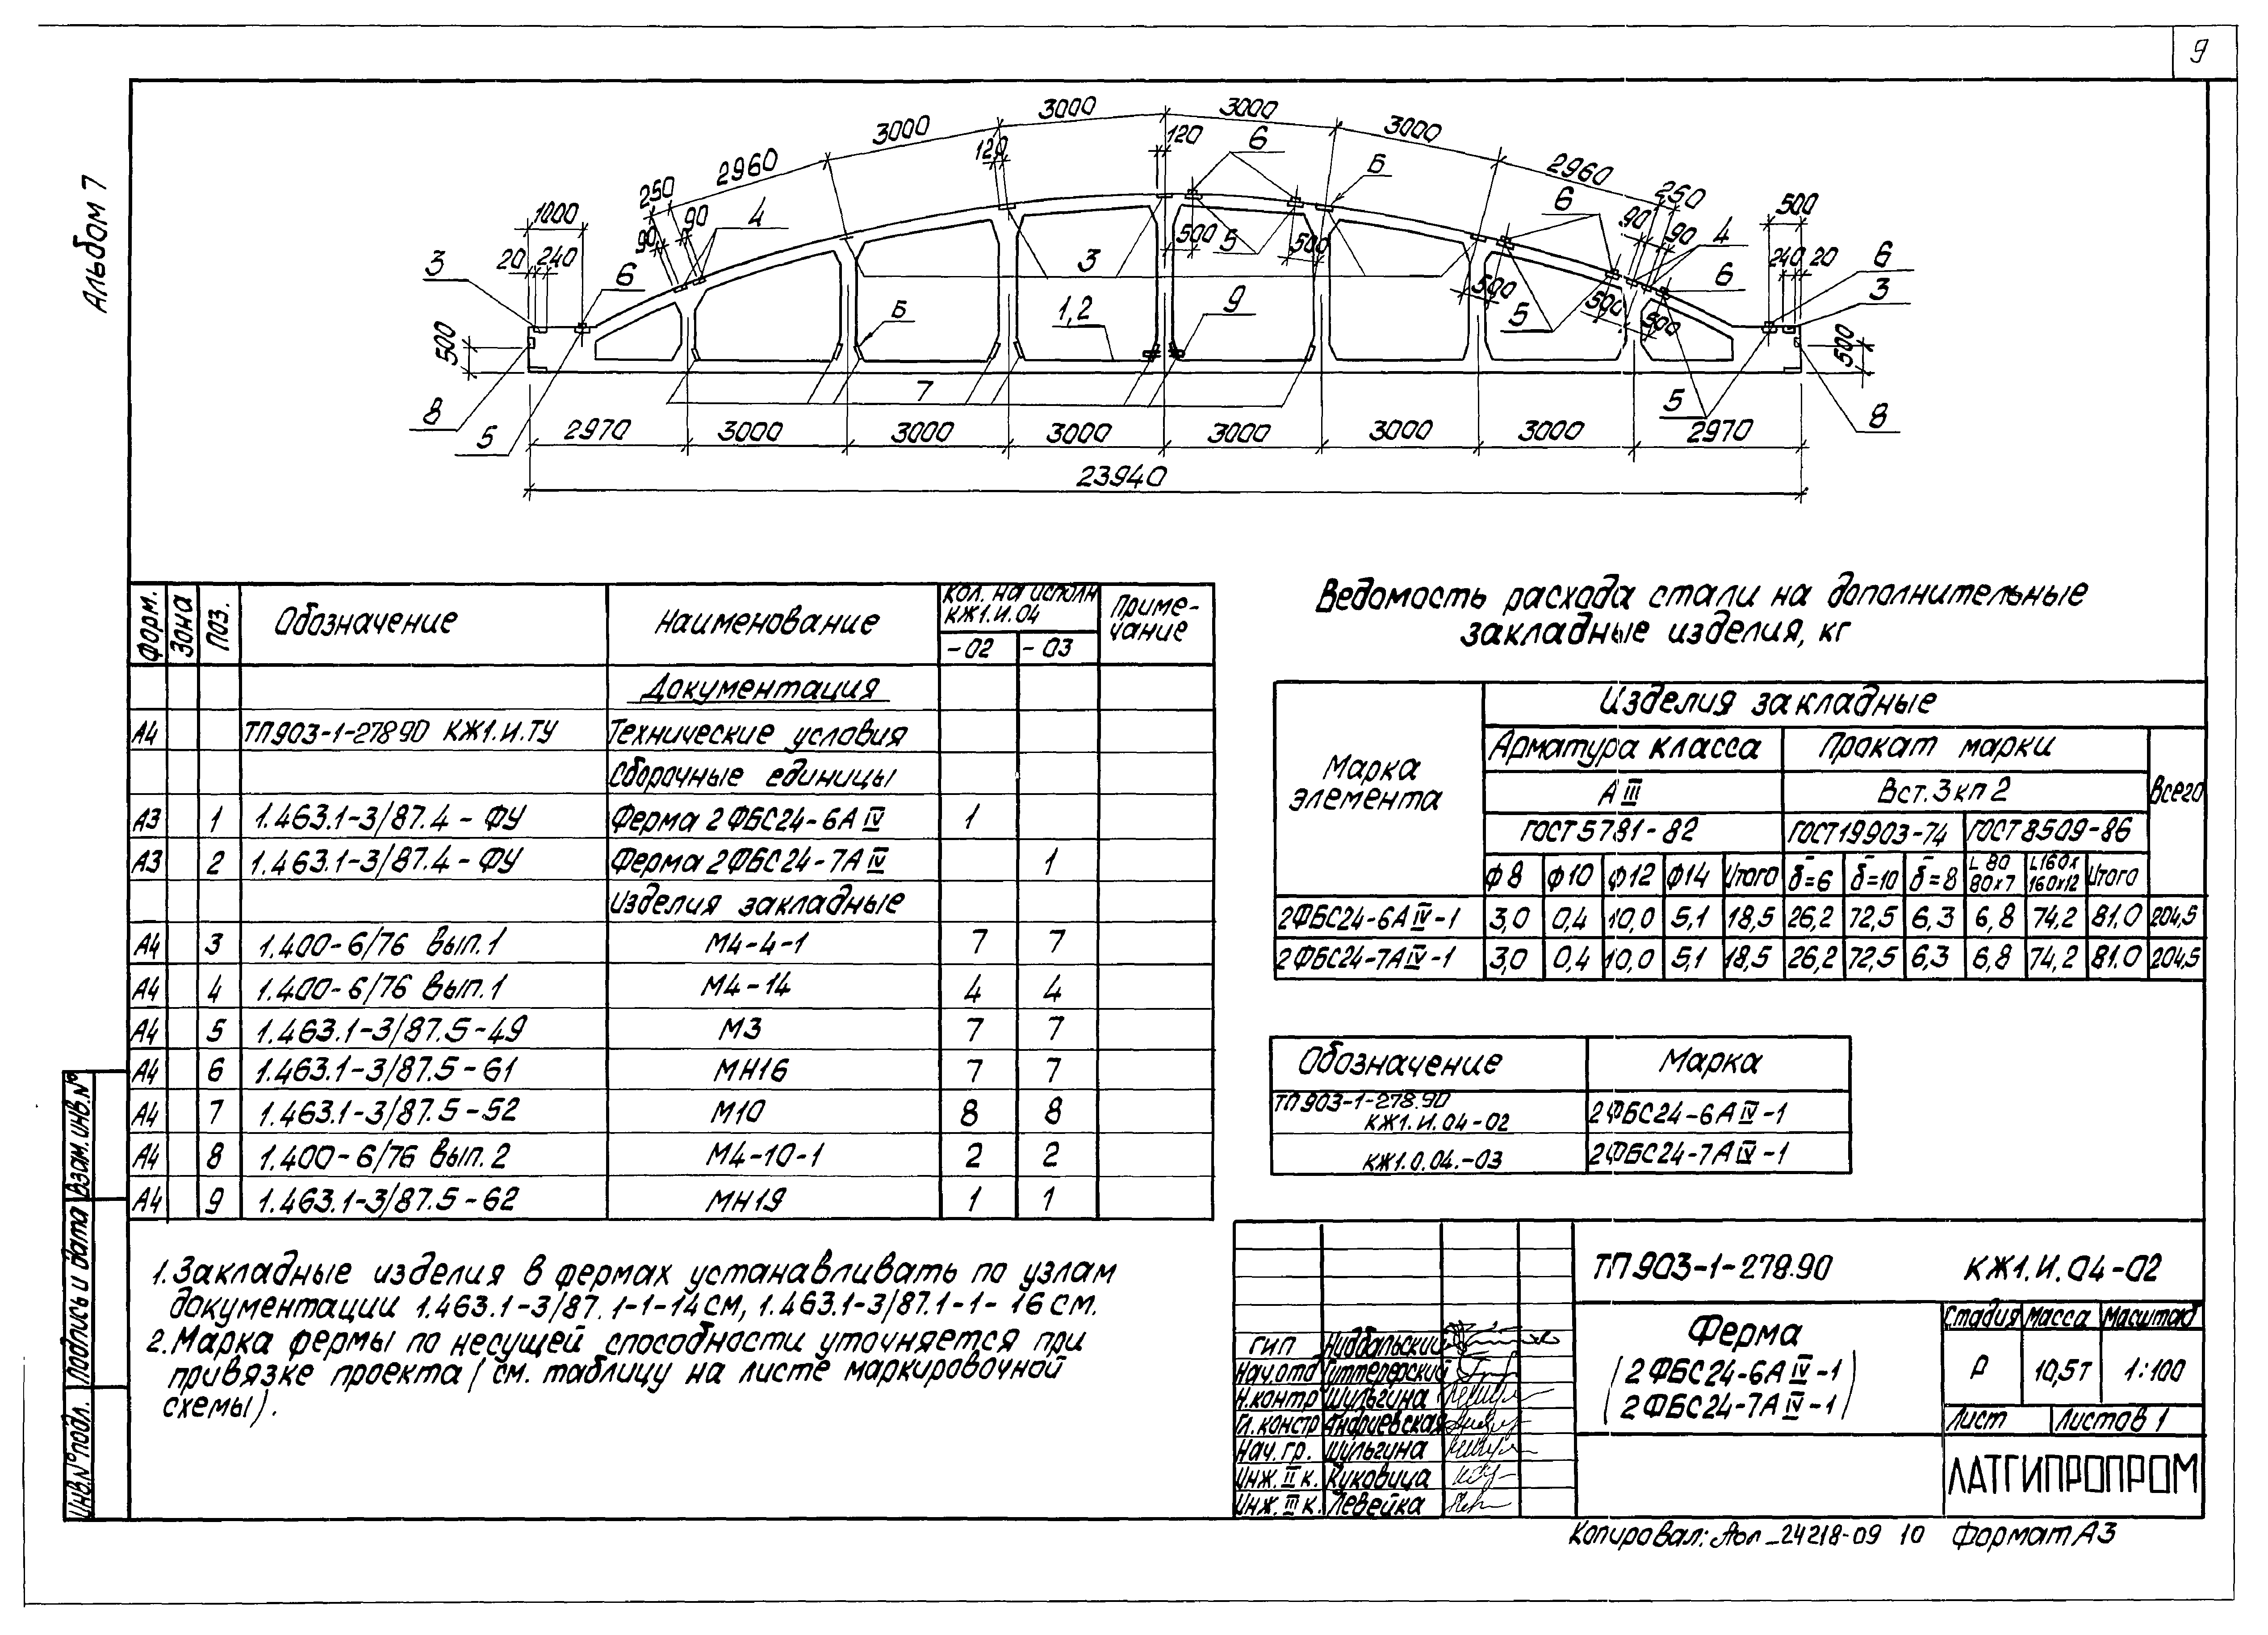 9
Альбом 7
3000 3000 3000 3000
2960 120 120 6 Б 2960
250 90 90 4 250 90 90 4
1000 500
3 20 240 6 500 5 500 3 6 240 20 6 3
500 Б 1,2 9 500 5 500 500 6 500
8 5 7 5 8
2970 3000 3000 3000 3000 3000 3000 2970
23940
Форм. Зона Поз. Обозначение Наименование Кол. на исполн КЖ1.И.04 Приме-чание
-02 -03
Документация
А4 ТП903-1-27890 КЖ1.И.ТУ Технические условия
Сборочные единицы
А3 1 1.463.1-3/87.4-ФУ Ферма 2ФБС24-6АIV 1
А3 2 1.463.1-3/87.4-ФУ Ферма 2ФБС24-7АIV 1
Изделия закладные
А4 3 1.400-6/76 вып.1 М4-4-1 7 7
А4 4 1.400-6/76 вып.1 М4-14 4 4
А4 5 1.463.1-3/87.5-49 М3 7 7
А4 6 1.463.1-3/87.5-61 МН16 7 7
А4 7 1.463.1-3/87.5-52 М10 8 8
А4 8 1.400-6/76 вып.2 М4-10-1 2 2
А4 9 1.463.1-3/87.5-62 МН19 1 1
1. Закладные изделия в фермах устанавливать по узлам
документации 1.463.1-3/87.1-1-14СМ, 1.463.1-3/87.1-1-16СМ.
2. Марка фермы по несущей способности уточняется при
привязке проекта (см. таблицу на листе маркировочной
схемы).
Ведомость расхода стали на дополнительные
закладные изделия, кг
Марка элемента Изделия закладные
Арматура класса Прокат марки Всего
АIII Вст.3кп2
ГОСТ5781-82 ГОСТ19903-74 ГОСТ8509-86
Ф8 Ф10 Ф12 Ф14 Итого δ=6 δ=10 δ=8 L80 80х7 L160х 160х12 Итого
2ФБС24-6АIV-1 3,0 0,4 10,0 5,1 18,5 26,2 72,5 6,3 6,8 74,2 81.0 204,5
2ФБС24-7АIV-1 3,0 0,4 10,0 5,1 18,5 26,2 72,5 6,3 6,8 74,2 81.0 204,5
Обозначение Марка
ТП903-1-278.90
КЖ1.И.04-02 2ФБС24-6АIV-1
КЖ1.0.04.-03 2ФБС24-7АIV-1
ТП903-1-278.90 КЖ1.И.04-02
Ферма
(2ФБС24-6АIV-1
2ФБС24-7АIV-1)
Стадия Масса Масштаб
Р 10,5т 1:100
Лист Листов 1
ЛАТГИПРОПРОМ
ГИП
Нач.отд
Н.контр Шульгина
Гл.констр Андриевская
Нач.гр. Шульгина
Инж.II к. Куковица
Инж.III к. Левейка
Взам.инв.№
Подпись и дата
Инв.№подл.
Копировал: 24218-09 10 Формат А3